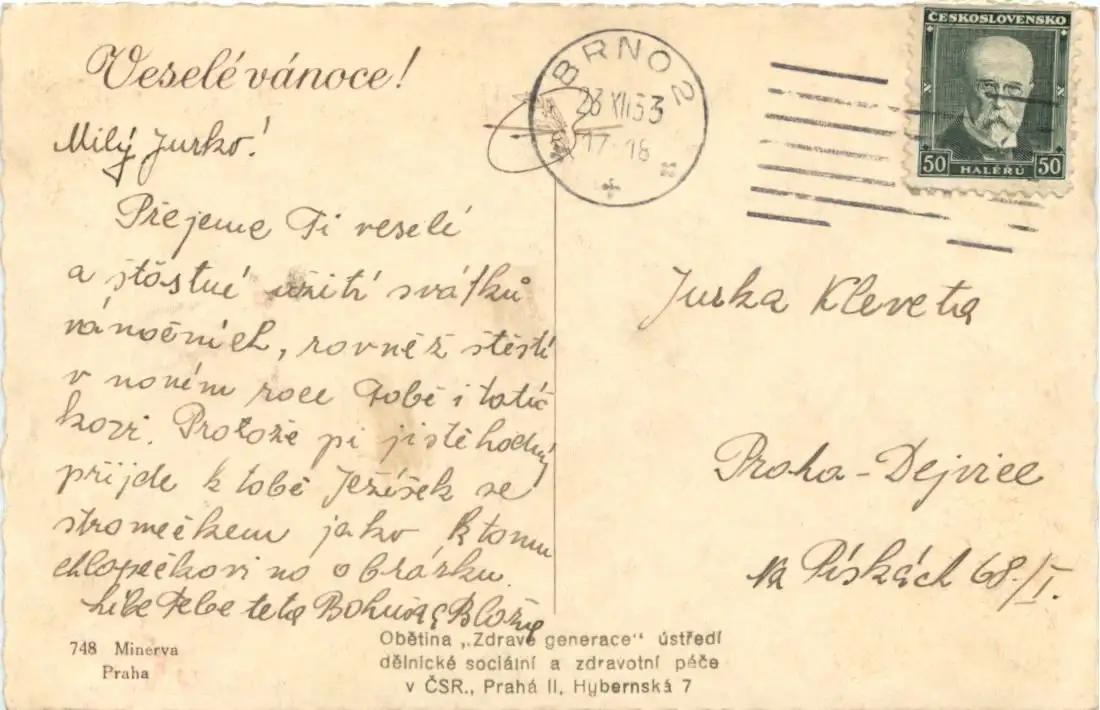 Veselé vánoce!
BRNO 2
23 XII 33
17-18
ČESKOSLOVENSKO
50 HALÉŘŮ 50
Milý Jurko!
Přejeme Ti veselé
a štastné užití svátků
vánočních, rovněž štěstí
v novém roce Tobě i tatíč
kovi. Protože jistě hodný
přijde k tobě Ježíšek se
stromečkem jako k tomu
chlopečkovi na obrázku.
líbe Tebe teta Bohuša
Jurka Kleveta
Praha-Dejvice
Na Pískách 68./I.
748 Minerva
Praha
Obětina „Zdravé generace" ústředí
dělnické sociální a zdravotní péče
v ČSR., Prahá II, Hybernská 7